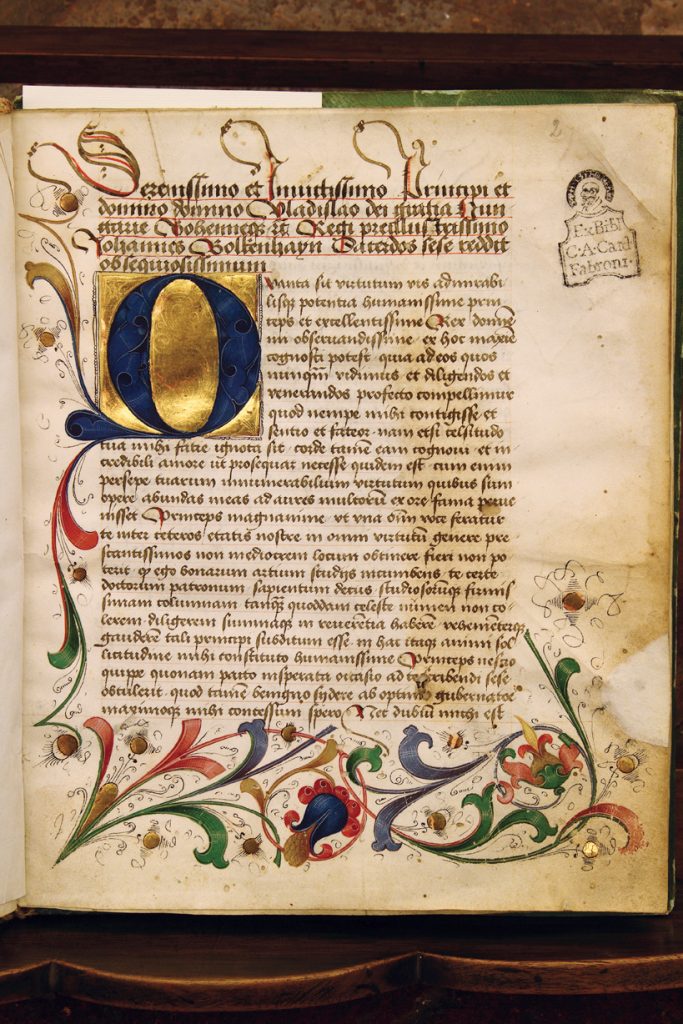 2
Serenissimo et Inuictissimo Principi et
domino domino Wladislao dei gratia Hun
garie Bohemieqꝫ ꝛc Regi preclarissimo
Johannes Bolkenhayn Sacerdos sese reddit
obsequiosissimum
Quanta sit virtutum vis admirabi
lisqꝫ potentia humanissime prin
ceps et excellentissime Rex domine
mi obseruandissime ex hoc maxie
cognosci potest quia ad eos quos
nunqꝫ vidimus et diligendos et
venerandos profecto compellimur
quod nempe mihi contigisse et
sentio et fateor nam etsi celsitudo
tua mihi facie ignota sit corde tamē eam cognoui et in
credibili amore vt prosequar necesse quidem est cum enim
persepe tuarum innumerabilium virtutum quibus sum
opere abundas meas ad aures multorū ex ore fama perue
nisset Princeps magnanime vt vna om̄ voce feratur
te inter ceteros etatis nostre in omni virtutū genere pre
stantissimos non mediocrem locum obtinere fieri non po
terit ꝙ ego bonarum artium studijs incumbens te certe
doctorum patronum sapientum decus studiosorūqꝫ firmis
simam columnam tanqꝫ quoddam celeste numen non co-
lerem diligerem summaqꝫ in reuerētia haberē vehemēterqꝫ
gauderem tali principi subditum esse in hac itaqꝫ animi sol
licitudine mihi constituto humanissime Princeps nescio
quippe quonam pacto insperata occasio ad scribendi sese
obtulerit quod tamē benigno sydere ab optimo gubernatore
maximoqꝫ mihi concessum spero Nec dubiū michi est
Ex Bibl
C. A. Card
Fabroni.